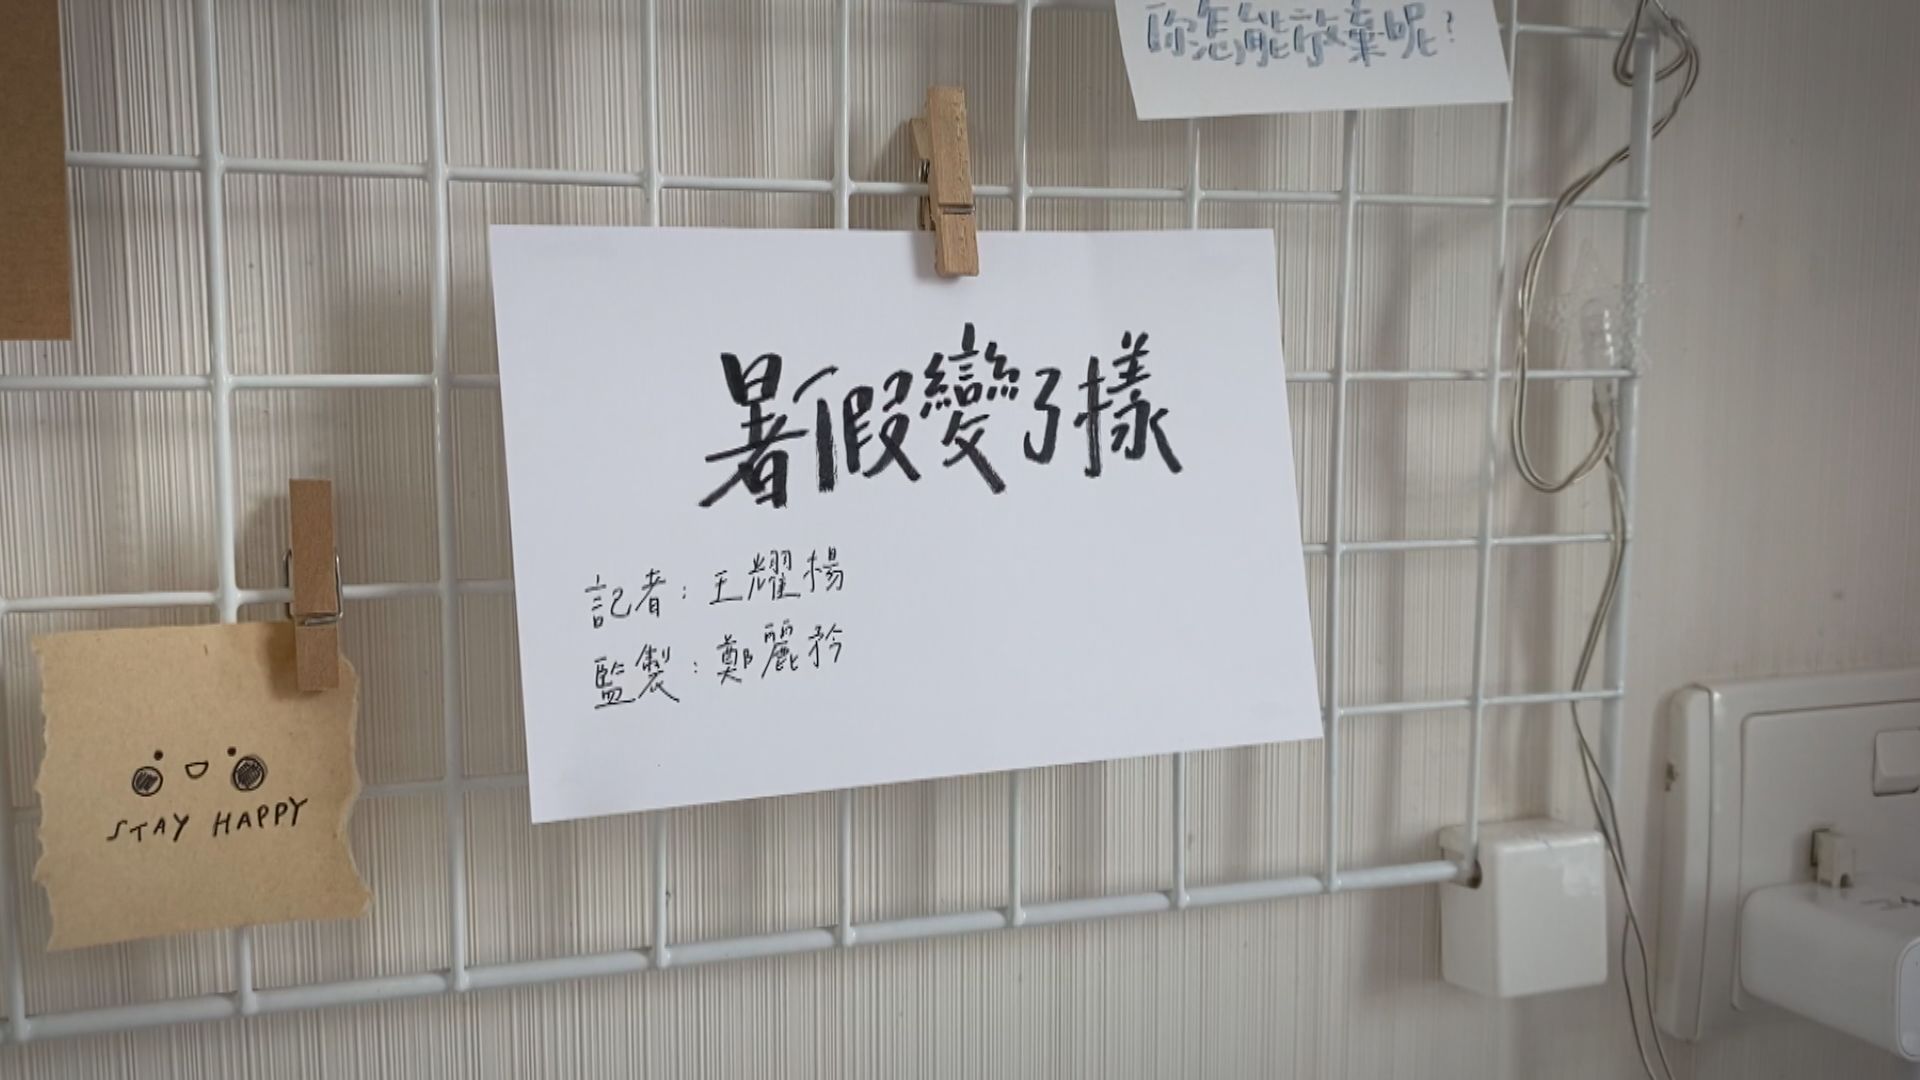 你怎能放棄呢?
暑假變了樣
記者：王耀楊
監製：鄭麗矜
STAY HAPPY